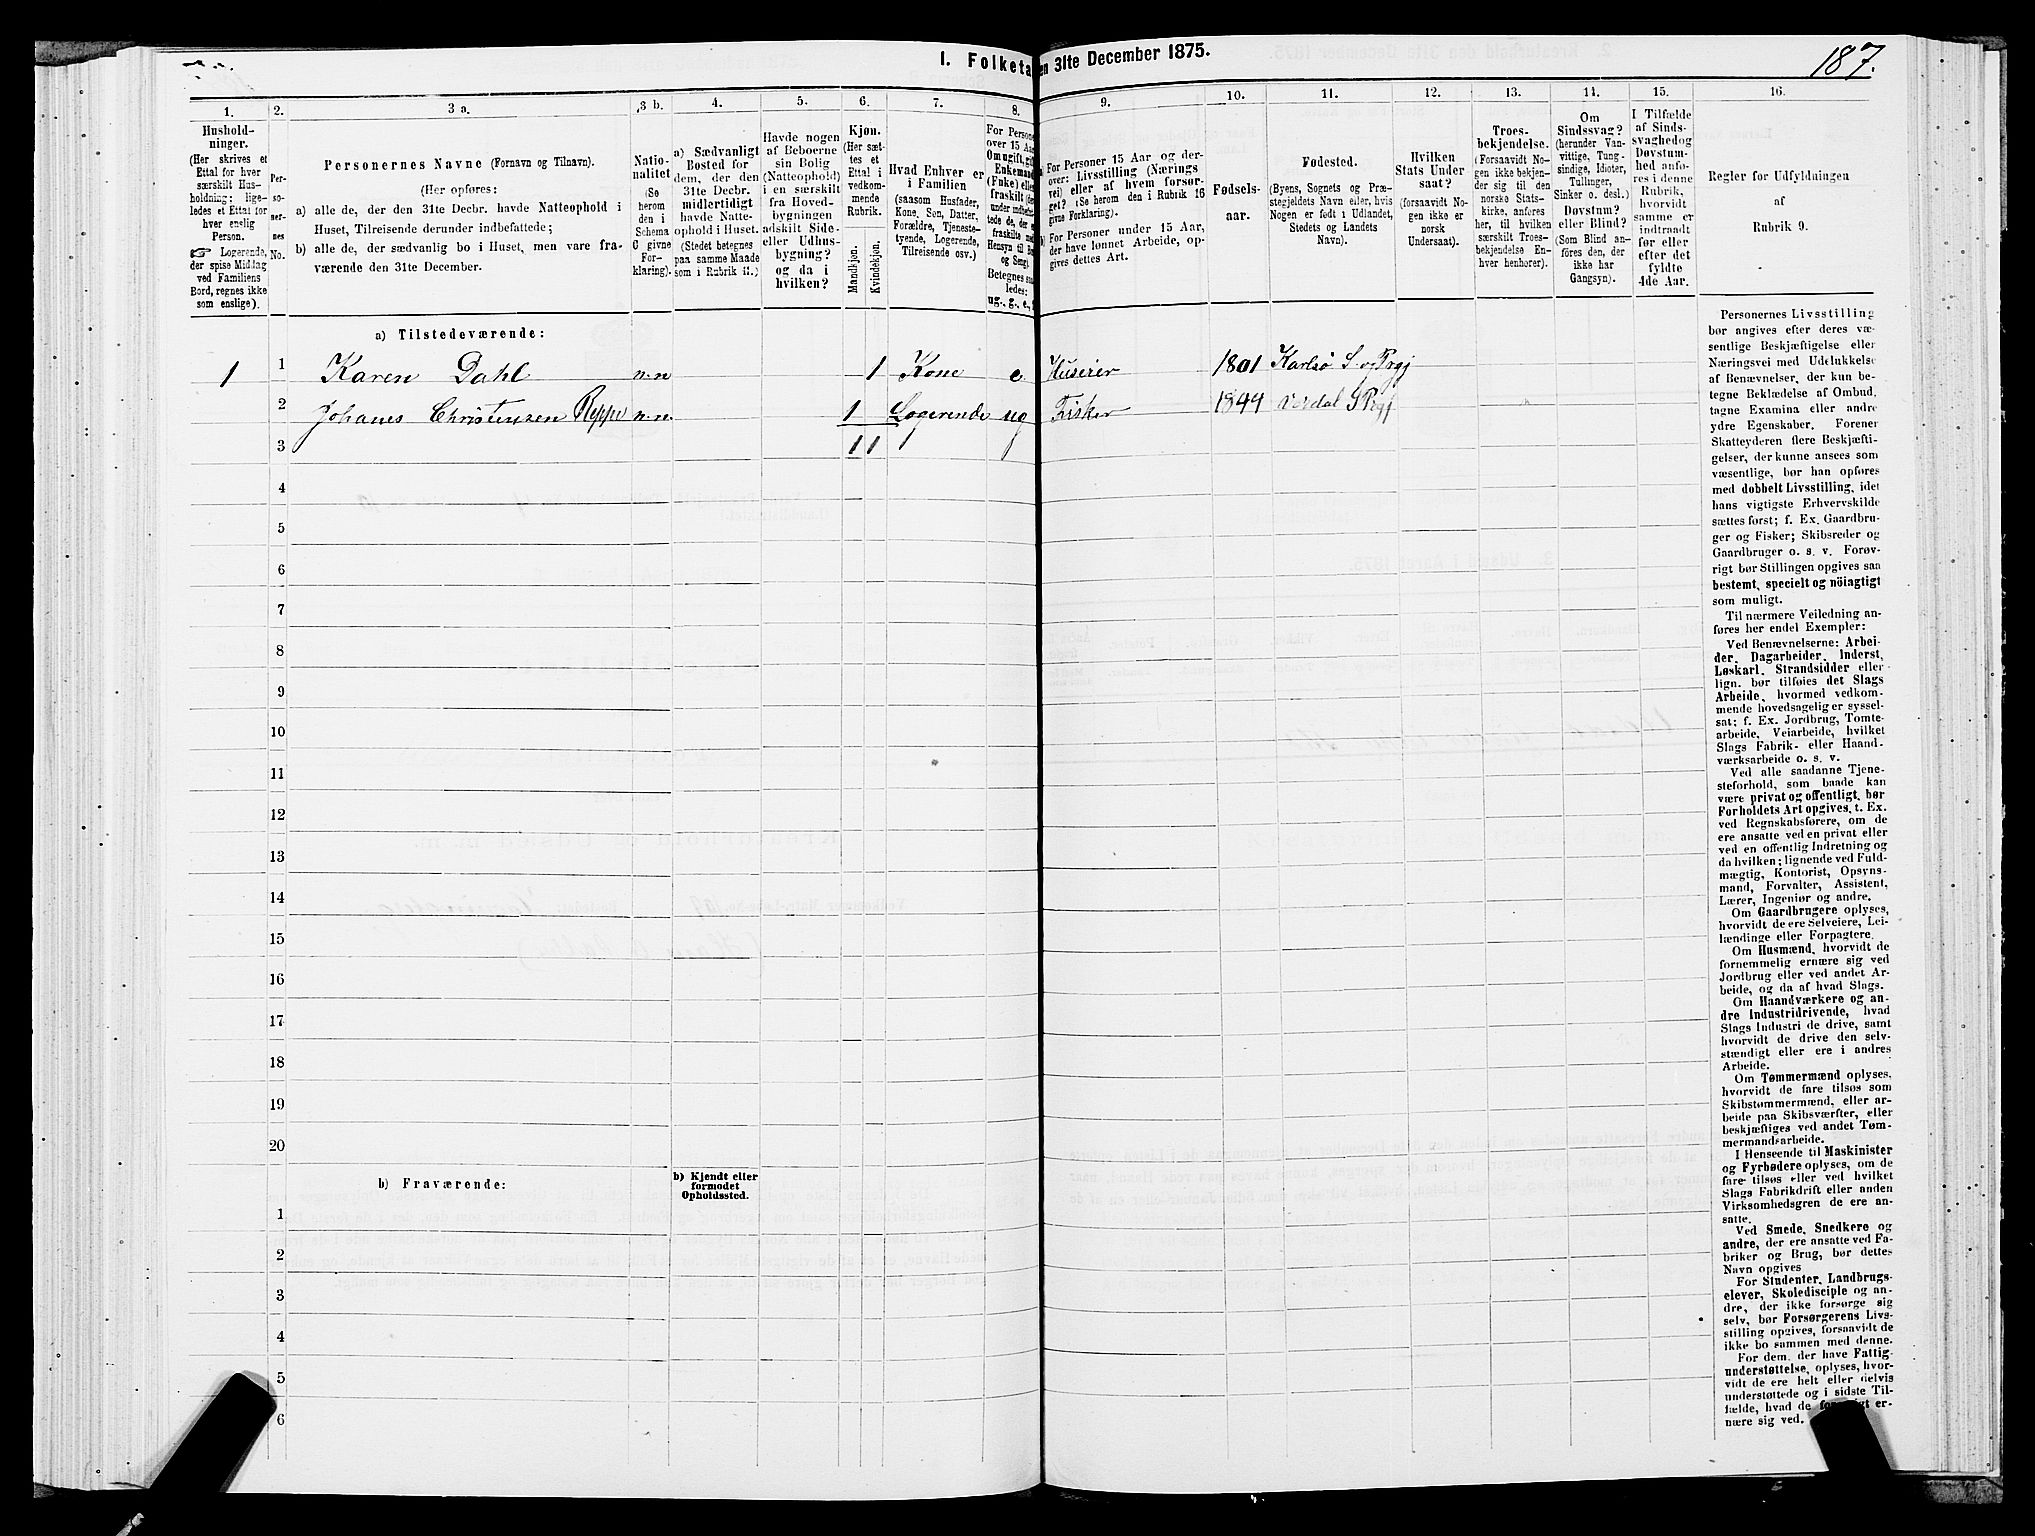 I. Folketa en 31te December 1875.
187.
1.
Hushold-
ninger.
(Her skrives et
Ettal for hver
særskilt Hus-
holdning: lige-
ledes et Ettal for
hver enslig
Person.
☞ Logerende,
der spise Middag
ved Familiens
Bord, regnes ikke
som enslige).
2.
Per-
so-
ner-
nes
No.
3 a.
Personernes Navne (Fornavn og Tilnavn).
(Her opføres:
a) alle de, der den 31te Decbr. havde Natteophold i
Huset, Tilreisende derunder indbefattede;
b) alle de, der sædvanlig bo i Huset, men vare fra-
værende den 31te December.
3 b.
Natio-
nalitet
(Se
herom
den i
Schema
C givne
For-
klaring).
4.
a) Sædvanligt
Bosted for
dem, der den
31te Decbr.
midlertidigt
havde Natte-
ophold i Huset.
(Stedet betegnes
paa samme Maade
som i Rubrik 11.)
5.
Havde nogen
af Beboerne
sin Bolig
(Natteophold)
i en særskilt
fra Hoved-
bygningen
adskilt Side-
eller Udhus-
bygning?
og da i
hvilken?
6.
Kjøn.
(Her sæt-
tes et
Ettal i
vedkom-
mende
Rubrik.
Mandkjøn.
Kvindekjøn.
7.
Hvad Enhver er
i Familien
(saasom Husfader,
Kone, Søn, Datter,
Forældre, Tjeneste-
tyende, Logerende,
Tilreisende osv.)
8.
For Persone
over 15 Aar
Om ugift, gift
Enkemand
(Enke) elle
fraskilt
Betegnes saa
ledes:
ug., g., e.,
9.
a) For Personer 15 Aar og der-
over: Livsstilling (Nærings
vei) eller af hvem forsør-
get? (Se herom den i Rubrik 16
givne Forklaring).
b) For Personer under 15 Aar,
der have lønnet Arbeide, op-
gives dettes Art.
10.
Fødsels-
aar.
11.
Fødested.
(Byens, Sognets og Præ-
stegjeldets Navn eller, hvis
Nogen er født i Udlandet,
Stedets og Landets
Navn).
12.
Hvilken
Stats Under
saat?
(forsaavidt No-
gen ikke er
norsk
Undersaat).
13.
Troes-
bekjendelse.
(Forsaavidt No-
gen ikke bekjen-
der sig til den
norske Stats-
kirke, anføres
her, til hvilken
særskilt Troes-
bekjendelse En-
hver henhører).
14.
Om
Sindssvag?
(herunder Van-
vittige, Tung-
sindige, Idioter,
Tullinger,
Sinker o. desl.)
Døvstum?
eller Blind?
(Som Blind an-
føres den, der
ikke har
Gangsyn).
15.
I Tilfælde
af Sinds-
svaghed og
Døvstum-
hed anfø-
res i denne
Rubrik,
hvorvidt
samme er
indtraadt
før eller
efter det
fyldte
4de Aar.
16.
Regler for Udfyldningen
af
Rubrik 9.
a) Tilstedeværende:
1 1 Karen Dahl n.n 1 Kone e. Huserer 1801 Karlsø S. og Prgj
2 Johanes Christensen Reppe n.n. 1 Logerende ug Fisker 1844 Verdal S Prgj
3 1 1
4
5
6
7
8
9
10
11
12
13
14
15
16
17
18
19
20
b) Fraværende:
b) Kjendt eller
formodet
Opholdssted.
1
2
3
4
5
6
Personernes Livsstilling
bør angives efter deres væ-
sentlige Beskjæftigelse eller
Næringsvei med Udelukkelse
af Benævnelser, der kun be-
tegne Beklædelse af Ombud,
tagne Examina eller andre
ydre Egenskaber. Forener
Skatteyderen flere Beskjæfti-
gelser, der kunne ansees som
væsentlige, bør han opføres
med dobbelt Livsstilling, idet
hans vigtigste Erhvervskilde
sættes først; f. Ex. Gaardbru-
ger og Fisker; Skibsreder og
Gaardbruger o. s. v. Forøv-
rigt bør Stillingen opgives saa
bestemt, specielt og nöiagtigt
som muligt.
Til nærmere Veiledning an-
føres her endel Exempler:
Ved Benævnelserne: Arbei-
der, Dagarbeider, Inderst,
Løskarl, Strandsidder eller
lign. bør tilføies det Slags
Arbeide, hvormed vedkom-
mende hovedsagelig er syssel-
sat; f. Ex. Jordbrug, Tomte-
arbeide, Veiarbeide, hvilket
Slags Fabrik- eller Haand-
værksarbeide o. s. v.
Ved alle saadanne Tjene-
steforhold, som baade kan
være privat og offentligt, bør
Forholdets Art opgives, t. Ex.
ved Regnskabsførere, om de
ere ansatte ved en privat eller
ved en offentlig Indretning og
da hvilken; lignende ved Fuld-
mægtig, Kontorist, Opsyns-
mand, Forvalter, Assistent,
Lærer, Ingeniør og andre.
Om Gaardbrugere oplyses,
hvorvidt de ere Selveiere, Lei-
lændinge eller Forpagtere.
Om Husmænd, hvorvidt de
fornemmelig ernære sig ved
Jordbrug eller ved andet Ar-
beide, og da af hvad Slags.
Om Haandværkere og an-
dre Industridrivende, hvad
Slags Industri de drive, samt
hvorvidt de drive den selv-
stændigt eller ere i andres
Arbeide.
Om Tømmermænd oplyses,
hvorvidt de fare tilsøs som
Skibstømmermænd, eller ar-
beide paa Skibsværfter, eller
beskjæftiges ved andet Tøm-
mermandsarbeide.
I Henseende til Maskinister
og Fyrbødere oplyses, om de
fare tilsøs eller ved hvilket
Slags Fabrikdrift eller anden
Virksomhedsgren de ere an-
satte.
Ved Smede, Snedkere og
andre, der ere ansatte ved Fa-
briker og Brug, bør dettes
Navn opgives
For Studenter, Landbrugs-
elever, Skoledisciple og an-
dre, der ikke forsørge sig
selv, bør Forsørgerens Livs-
stilling opgives, forsaavidt de
ikke bo sammen med denne.
For dem, der have Fattig-
understøttelse, oplyses, hvor-
vidt de ere helt eller delvis
understøttede og i sidste Til-
fælde, hvad de er-
nære sig ved.